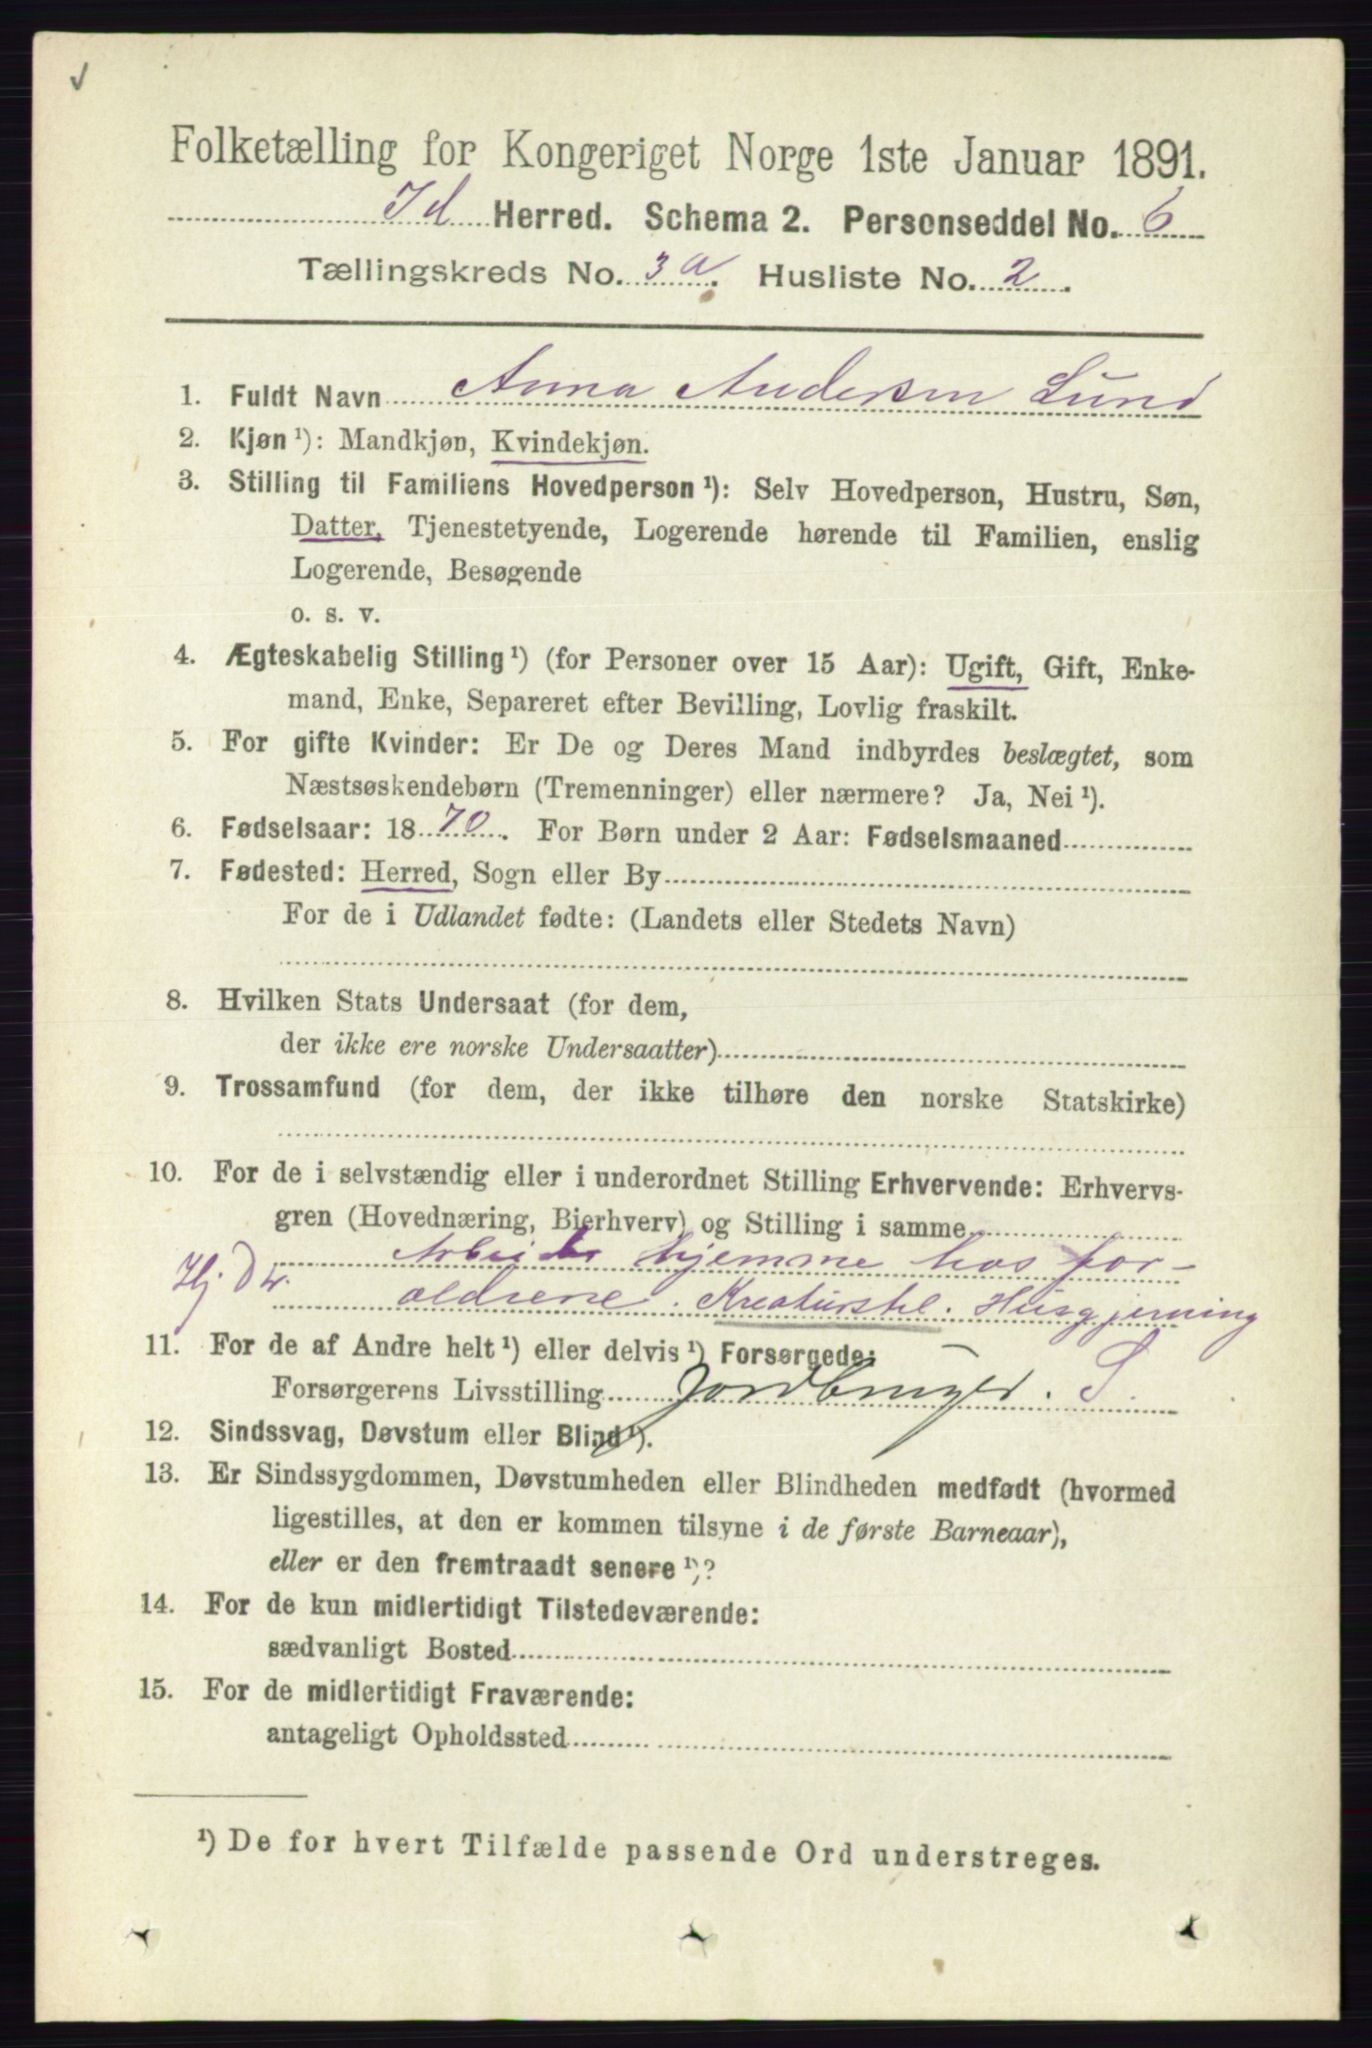 Folketælling for Kongeriget Norge 1ste Januar 1891.
Id Herred. Schema 2. Personseddel No. 6
Tællingskreds No. 3a. Husliste No. 2.
1. Fuldt Navn Anna Andersen Lund
2. Kjøn ¹): Mandkjøn, Kvindekjøn.
3. Stilling til Familiens Hovedperson ¹): Selv Hovedperson, Hustru, Søn,
Datter, Tjenestetyende, Logerende hørende til Familien, enslig
Logerende, Besøgende
o. s. v.
4. Ægteskabelig Stilling ¹) (for Personer over 15 Aar): Ugift, Gift, Enke-
mand, Enke, Separeret efter Bevilling, Lovlig fraskilt.
5. For gifte Kvinder: Er De og Deres Mand indbyrdes beslægtet, som
Næstsøskendebørn (Tremenninger) eller nærmere? Ja, Nei ¹).
6. Fødselsaar: 1870. For Børn under 2 Aar: Fødselsmaaned
7. Fødested: Herred, Sogn eller By
For de i Udlandet fødte: (Landets eller Stedets Navn)
8. Hvilken Stats Undersaat (for dem,
der ikke ere norske Undersaatter)
9. Trossamfund (for dem, der ikke tilhøre den norske Statskirke)
10. For de i selvstændig eller i underordnet Stilling Erhvervende: Erhvervs-
gren (Hovednæring, Bierhverv) og Stilling i samme
Arbeider hjemme hos for-
ældrene. Kreaturstel. Husgjerning
11. For de af Andre helt ¹) eller delvis ¹) Forsørgede:
Forsørgerens Livsstilling Jordbruger. S.
12. Sindssvag, Døvstum eller Blind ¹).
13. Er Sindssygdommen, Døvstumheden eller Blindheden medfødt (hvormed
ligestilles, at den er kommen tilsyne i de første Barneaar),
eller er den fremtraadt senere ¹)?
14. For de kun midlertidigt Tilstedeværende:
sædvanligt Bosted
15. For de midlertidigt Fraværende:
antageligt Opholdssted
¹) De for hvert Tilfælde passende Ord understreges.